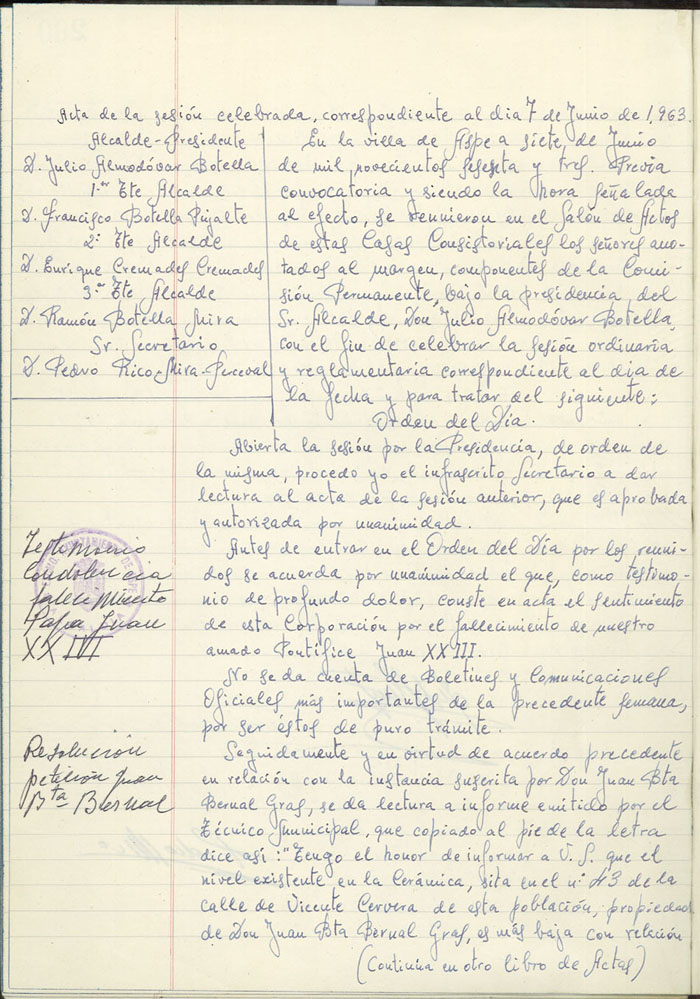 Acta de la sesión celebrada, correspondiente al dia 7 de Junio de 1,963.
Alcalde-Presidente
D. Julio Almodóvar Botella
1.er Tte Alcalde
D. Francisco Botella Pujalte
2º Tte Alcalde
D. Enrique Cremades Cremades
3.er Tte Alcalde
D. Ramón Botella Mira
Sr. Secretario
D. Pedro Rico-Mira-Perceval
En la villa de Aspe a siete, de Junio
de mil, novecientos sesenta y tres. Previa
convocatoria y siendo la hora señalada
al efecto, se reunieron en el Salón de Actos
de estas Casas Consistoriales los señores ano-
tados al margen, componentes de la Comi-
sión Permanente, bajo la presidencia, del
Sr. Alcalde, Don Julio Almodóvar Botella,
con el fin de celebrar la sesión ordinaria
y reglamentaria correspondiente al dia de
la fecha y para tratar del siguiente:
Orden del Día.
Abierta la sesión por la Presidencia, de orden de
la misma, procedo yo el infrascrito Secretario a dar
lectura al acta de la sesión anterior, que es aprobada
y autorizada por unanimidad.
Testimonio
Condolencia
fallecimiento
Papa Juan
XXIII
Antes de entrar en el Orden del Día por los reuni-
dos se acuerda por unanimidad el que, como testimo-
nio de profundo dolor, conste en acta el sentimiento
de esta Corporación por el fallecimiento de nuestro
amado Pontífice Juan XXIII.
No se da cuenta de Boletines y Comunicaciones
Oficiales más importantes de la precedente semana,
por ser éstos de puro trámite.
Resolución
petición Juan
Bta Bernal
Seguidamente y en virtud de acuerdo precedente
en relación con la instancia suscrita por Don Juan Bta
Bernal Gras, se da lectura a informe emitido por el
Técnico Municipal, que copiado al pie de la letra
dice así: "Tengo el honor de informar a V. S. que el
nivel existente en la Cerámica, sita en el nº 43 de la
calle de Vicente Cervera de esta población, propiedad
de Don Juan Bta Bernal Gras, es más baja con relación
(Continua en otro libro de Actas)